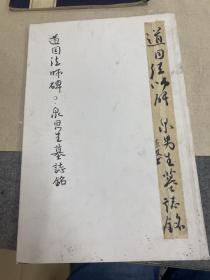 道因法师碑 泉男生墓誌
道因法师碑。泉男生墓誌銘